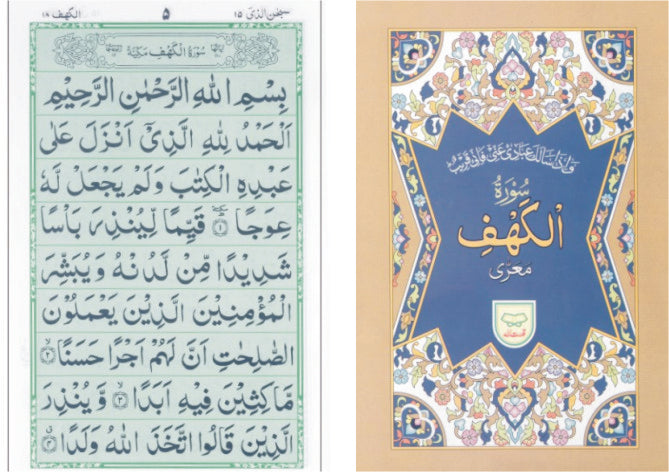 سبحن الذی ١٥ ٥ الكهف ١٨
سُوْرَةُ الْكَهْفِ مَكِّيَّةٌ
بِسْمِ اللهِ الرَّحْمٰنِ الرَّحِيْمِ
اَلْحَمْدُ لِلّٰهِ الَّذِىْٓ اَنْزَلَ عَلٰى
عَبْدِهِ الْكِتٰبَ وَلَمْ يَجْعَلْ لَّهٗ
عِوَجًا ١ قَيِّمًا لِّيُنْذِرَ بَاْسًا
شَدِيْدًا مِّنْ لَّدُنْهُ وَيُبَشِّرَ
الْمُؤْمِنِيْنَ الَّذِيْنَ يَعْمَلُوْنَ
الصّٰلِحٰتِ اَنَّ لَهُمْ اَجْرًا حَسَنًا ٢
مَّاكِثِيْنَ فِيْهِ اَبَدًا ٣ وَّيُنْذِرَ
الَّذِيْنَ قَالُوا اتَّخَذَ اللهُ وَلَدًا ۴
وَاِذَا سَاَلَكَ عِبَادِىْ عَنِّىْ فَاِنِّىْ قَرِيْبٌ
سُوْرَةُ
اَلْكَهْفِ
مَعَرّٰى